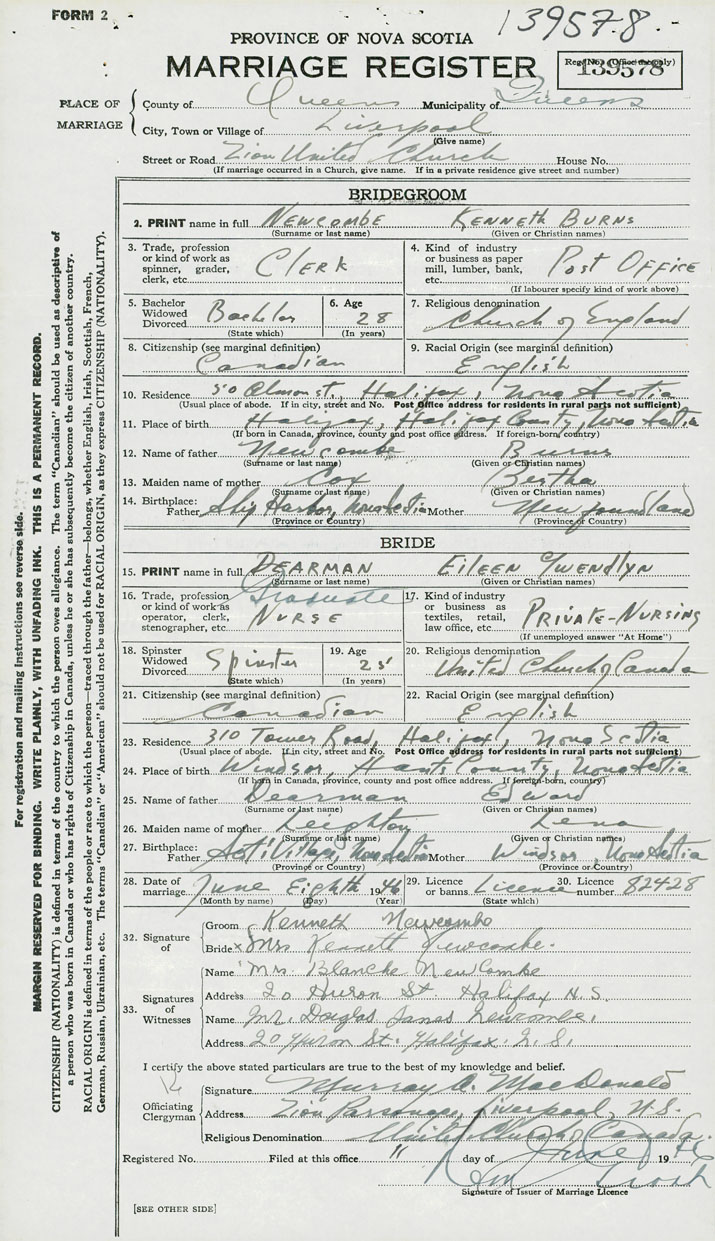 FORM 2
139578.
PROVINCE OF NOVA SCOTIA
MARRIAGE REGISTER
139578
PLACE OF MARRIAGE
County of Queens Municipality of Queens
City, Town or Village of Liverpool
(Give name)
Street or Road Zion United Church House No.
(If marriage occurred in a Church, give name. If in a private residence give street and number)
BRIDEGROOM
2. PRINT name in full NEWCOMBE KENNETH BURNS
(Surname or last name) (Given or Christian names)
3. Trade, profession or kind of work as spinner, grader, clerk, etc. CLERK
4. Kind of industry or business as paper mill, lumber, bank, etc. POST OFFICE
(If labourer specify kind of work above)
5. Bachelor Widowed Divorced Bachelor
(State which)
6. Age 28
(In years)
7. Religious denomination Church of England
8. Citizenship (see marginal definition) Canadian
9. Racial Origin (see marginal definition) English
10. Residence 50 Almon st., Halifax, Nova Scotia
(Usual place of abode. If in city, street and No. Post Office address for residents in rural parts not sufficient)
11. Place of birth Halifax, Halifax County, Nova Scotia
(If born in Canada, province, county and post office address. If foreign-born, country)
12. Name of father Newcombe Burns
(Surname or last name) (Given or Christian names)
13. Maiden name of mother Cox Bertha
(Surname or last name) (Given or Christian names)
14. Birthplace: Father Ship Harbor, Nova Scotia Mother Newfoundland
(Province or Country) (Province or Country)
BRIDE
15. PRINT name in full DEARMAN EILEEN GWENDLYN
(Surname or last name) (Given or Christian names)
16. Trade, profession or kind of work as operator, clerk, stenographer, etc. Graduate NURSE
17. Kind of industry or business as textiles, retail, law office, etc. PRIVATE-NURSING
(If unemployed answer "At Home")
18. Spinster Widowed Divorced Spinster
(State which)
19. Age 25
(In years)
20. Religious denomination United Church of Canada
21. Citizenship (see marginal definition) Canadian
22. Racial Origin (see marginal definition) English
23. Residence 310 Tower Road, Halifax, Nova Scotia
(Usual place of abode. If in city, street and No. Post Office address for residents in rural parts not sufficient)
24. Place of birth Windsor, Hants County, Nova Scotia
(If born in Canada, province, county and post office address. If foreign-born, country)
25. Name of father Dearman Edward
(Surname or last name) (Given or Christian names)
26. Maiden name of mother Leighton Lena
(Surname or last name) (Given or Christian names)
27. Birthplace: Father Village, Nova Scotia Mother Windsor, Nova Scotia
(Province or Country) (Province or Country)
28. Date of marriage June Eighth 1946
(Month by name) (Day) (Year)
29. Licence or banns Licence
(State which)
30. Licence number 82428
32. Signature of
Groom Kenneth Newcombe
Bride x Mrs Kenneth Newcombe.
33. Signatures of Witnesses
Name Mrs. Blanche Newcombe
Address 20 Huron St. Halifax N.S.
Name Mr. Douglas James Newcombe.
Address 20 Huron St. Halifax N.S.
I certify the above stated particulars are true to the best of my knowledge and belief.
Officiating Clergyman
Signature Murray A. MacDonald
Address Zion Parsonage, Liverpool, N.S.
Religious Denomination United Church of Canada.
Registered No. Filed at this office 11 day of June 1946
Signature of Issuer of Marriage Licence
[SEE OTHER SIDE]
For registration and mailing instructions see reverse side.
MARGIN RESERVED FOR BINDING. WRITE PLAINLY, WITH UNFADING INK. THIS IS A PERMANENT RECORD.
CITIZENSHIP (NATIONALITY) is defined in terms of the country to which the person owes allegiance. The term "Canadian" should be used as descriptive of
a person who was born in Canada or who has rights of Citizenship in Canada, unless he or she has subsequently become the citizen of another country.
RACIAL ORIGIN is defined in terms of the people or race to which the person—traced through the father—belongs, whether English, Irish, Scottish, French,
German, Russian, Ukrainian, etc. The terms "Canadian" or "American" should not be used for RACIAL ORIGIN, as they express CITIZENSHIP (NATIONALITY).